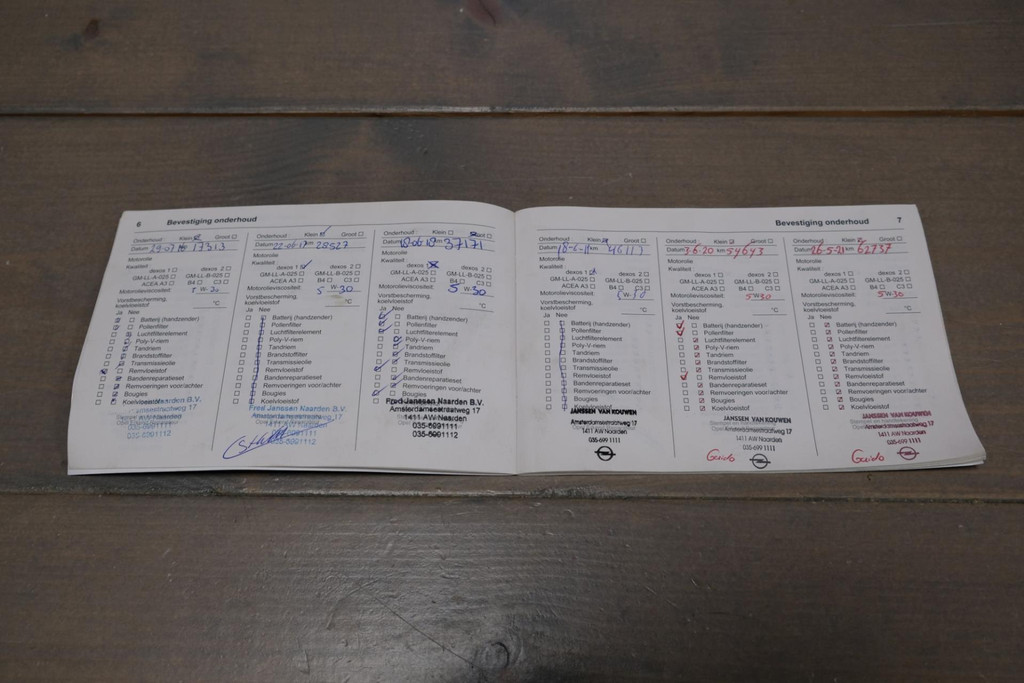 6 Bevestiging onderhoud
Onderhoud: Klein Groot
Datum 29-07 17313
Motorolie
Kwaliteit
dexos 1 dexos 2
GM-LL-A-025 GM-LL-B-025
ACEA A3 B4 C3
Motorolieviscositeit: 5 W-30
Vorstbescherming, koelvloeistof °C
Ja Nee
Batterij (handzender)
Pollenfilter
Luchtfilterelement
Poly-V-riem
Tandriem
Brandstoffilter
Transmissieolie
Remvloeistof
Bandenreparatieset
Remvoeringen voor/achter
Bougies
Koelvloeistof
Fred Janssen Naarden B.V.
Amsterdamsestraatweg 17
035-6991111
035-6991112
Onderhoud: Klein Groot
Datum 22-06-17 km 28527
Motorolie
Kwaliteit
dexos 1 dexos 2
GM-LL-A-025 GM-LL-B-025
ACEA A3 B4 C3
Motorolieviscositeit: 5 W-30
Vorstbescherming, koelvloeistof °C
Ja Nee
Batterij (handzender)
Pollenfilter
Luchtfilterelement
Poly-V-riem
Tandriem
Brandstoffilter
Transmissieolie
Remvloeistof
Bandenreparatieset
Remvoeringen voor/achter
Bougies
Koelvloeistof
Fred Janssen Naarden B.V.
Amsterdamsestraatweg 17
035-6991111
035-6991112
Onderhoud: Klein Groot
Datum 37171
Motorolie
Kwaliteit
dexos 1 dexos 2
GM-LL-A-025 GM-LL-B-025
ACEA A3 B4 C3
Motorolieviscositeit: 5 W-30
Vorstbescherming, koelvloeistof °C
Ja Nee
Batterij (handzender)
Pollenfilter
Luchtfilterelement
Poly-V-riem
Tandriem
Brandstoffilter
Transmissieolie
Remvloeistof
Bandenreparatieset
Remvoeringen voor/achter
Bougies
Koelvloeistof
Fred Janssen Naarden B.V.
Amsterdamsestraatweg 17
1411 AW Naarden
035-6991111
035-6991112
Bevestiging onderhoud 7
Onderhoud: Klein Groot
Datum km
Motorolie
Kwaliteit
dexos 1 dexos 2
GM-LL-A-025 GM-LL-B-025
ACEA A3 B4 C3
Motorolieviscositeit: 5W-30
Vorstbescherming, koelvloeistof °C
Ja Nee
Batterij (handzender)
Pollenfilter
Luchtfilterelement
Poly-V-riem
Tandriem
Brandstoffilter
Transmissieolie
Remvloeistof
Bandenreparatieset
Remvoeringen voor/achter
Bougies
Koelvloeistof
JANSSEN VAN KOUWEN
Amsterdamsestraatweg 17
1411 AW Naarden
035-699 1111
Onderhoud: Klein Groot
Datum 3-6-20 km 54643
Motorolie
Kwaliteit
dexos 1 dexos 2
GM-LL-A-025 GM-LL-B-025
ACEA A3 B4 C3
Motorolieviscositeit: 5W30
Vorstbescherming, koelvloeistof °C
Ja Nee
Batterij (handzender)
Pollenfilter
Luchtfilterelement
Poly-V-riem
Tandriem
Brandstoffilter
Transmissieolie
Remvloeistof
Bandenreparatieset
Remvoeringen voor/achter
Bougies
Koelvloeistof
JANSSEN VAN KOUWEN
Amsterdamsestraatweg 17
1411 AW Naarden
035-699 1111
Guido
Onderhoud: Klein Groot
Datum 26-5-21 km 62737
Motorolie
Kwaliteit
dexos 1 dexos 2
GM-LL-A-025 GM-LL-B-025
ACEA A3 B4 C3
Motorolieviscositeit: 5W30
Vorstbescherming, koelvloeistof °C
Ja Nee
Batterij (handzender)
Pollenfilter
Luchtfilterelement
Poly-V-riem
Tandriem
Brandstoffilter
Transmissieolie
Remvloeistof
Bandenreparatieset
Remvoeringen voor/achter
Bougies
Koelvloeistof
JANSSEN VAN KOUWEN
Amsterdamsestraatweg 17
1411 AW Naarden
035-699 1111
Guido